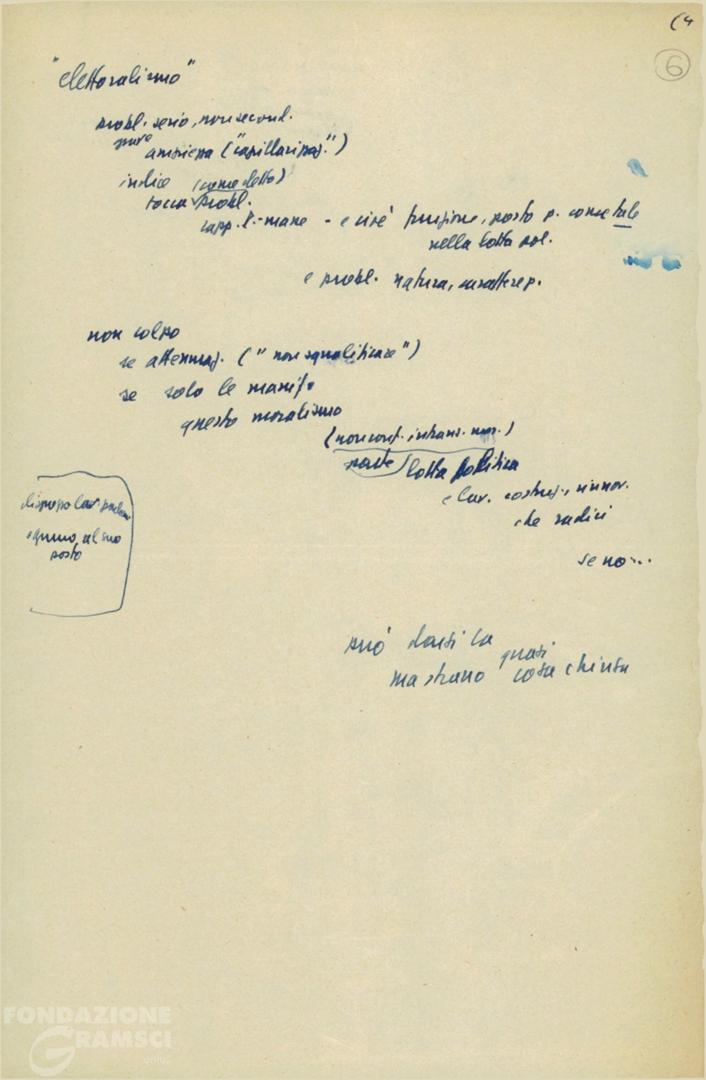 (4
6
"elettoralismo"
probl. serio, non second.
pure
ampiezza ("capillarizzaz.")
indice (come detto)
tocca probl.
rapp. P.-masse - e cioè funzione, posto p. come tale
nella lotta pol.
e probl. natura, carattere p.
non colpo
se attenuaz. ("non squalificare")
se solo le manif.
questo moralismo
(non cont. intrans. mor.)
parte lotta politica
e lav. costruz., rinnov.
che radici
se no...
disposto lav.
ognuno, al suo
posto
può darsi la
quasi
ma strano cosa chiusa
FONDAZIONE
GRAMSCI
onlus